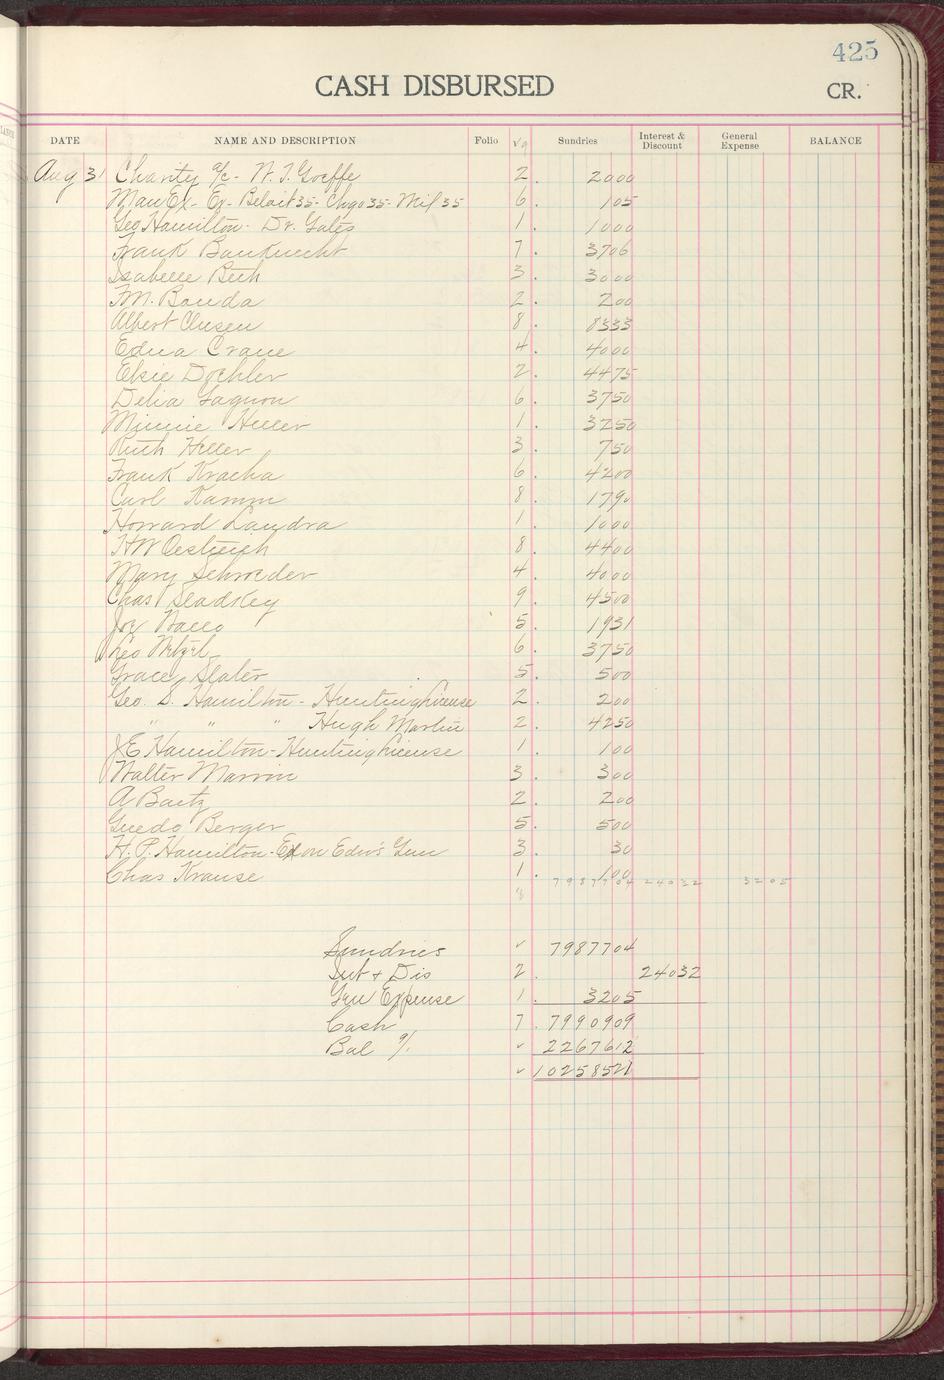 425
CASH DISBURSED
CR.
DATE NAME AND DESCRIPTION Folio Sundries Interest & Discount General Expense BALANCE
Aug 31 Charity a/c - W. J. Goeffe 2. 2000
Man Ex - Ex - Beloit 35 - Chgo 35 - Mil 35 6. 105
Geo Hamilton - Dr. Yates 1. 1000
Frank Bauknecht 7. 3706
Isabelle Beth 3. 3000
F.M. Bouda 2. 200
Albert Clusen 8. 8333
Edna Crane 4. 4000
Elsie Doehler 2. 4475
Delia Gagnon 6. 3750
Minnie Heller 1. 3250
Ruth Heller 3. 750
Frank Kracha 6. 4200
Carl Kamm 8. 1790
Howard Landra 1. 1000
HW Oestreich 8. 4400
Mary Schroeder 4. 4000
Chas Sladkey 9. 4500
Joe Vacco 5. 1931
Leo Wetzel 6. 3750
Grace Slater 5. 500
Geo. S. Hamilton - Hunting license 2. 200
" " " Hugh Martin 2. 4250
J E Hamilton - Hunting license 1. 100
Walter Marrin 3. 300
A Bartz 2. 200
Guedo Berger 5. 500
H. P. Hamilton - Ex on Edw's Gun 3. 30
Chas Krause 1. 100
7987704 24032 3205
Sundries ✓ 7987704
Int + Dis 2. 24032
Gen Expense 1. 3205
Cash 7. 7990909
Bal a/c ✓ 2267612
✓ 10258521